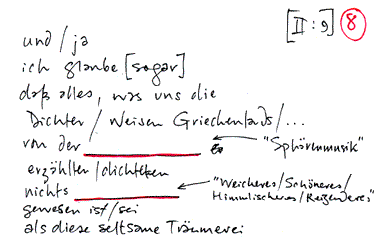 [II:9] 8
und/ja
ich glaube [sogar]
daß alles, was uns die
Dichter/Weisen Griechenlands/...
von der ________ ← "Sphärenmusik"
erzählten/dichteten
nichts ________ ← "Weicheres/Schöneres/
Himmlischeres/Reizenderes"
gewesen ist/sei
als diese seltsame Träumerei